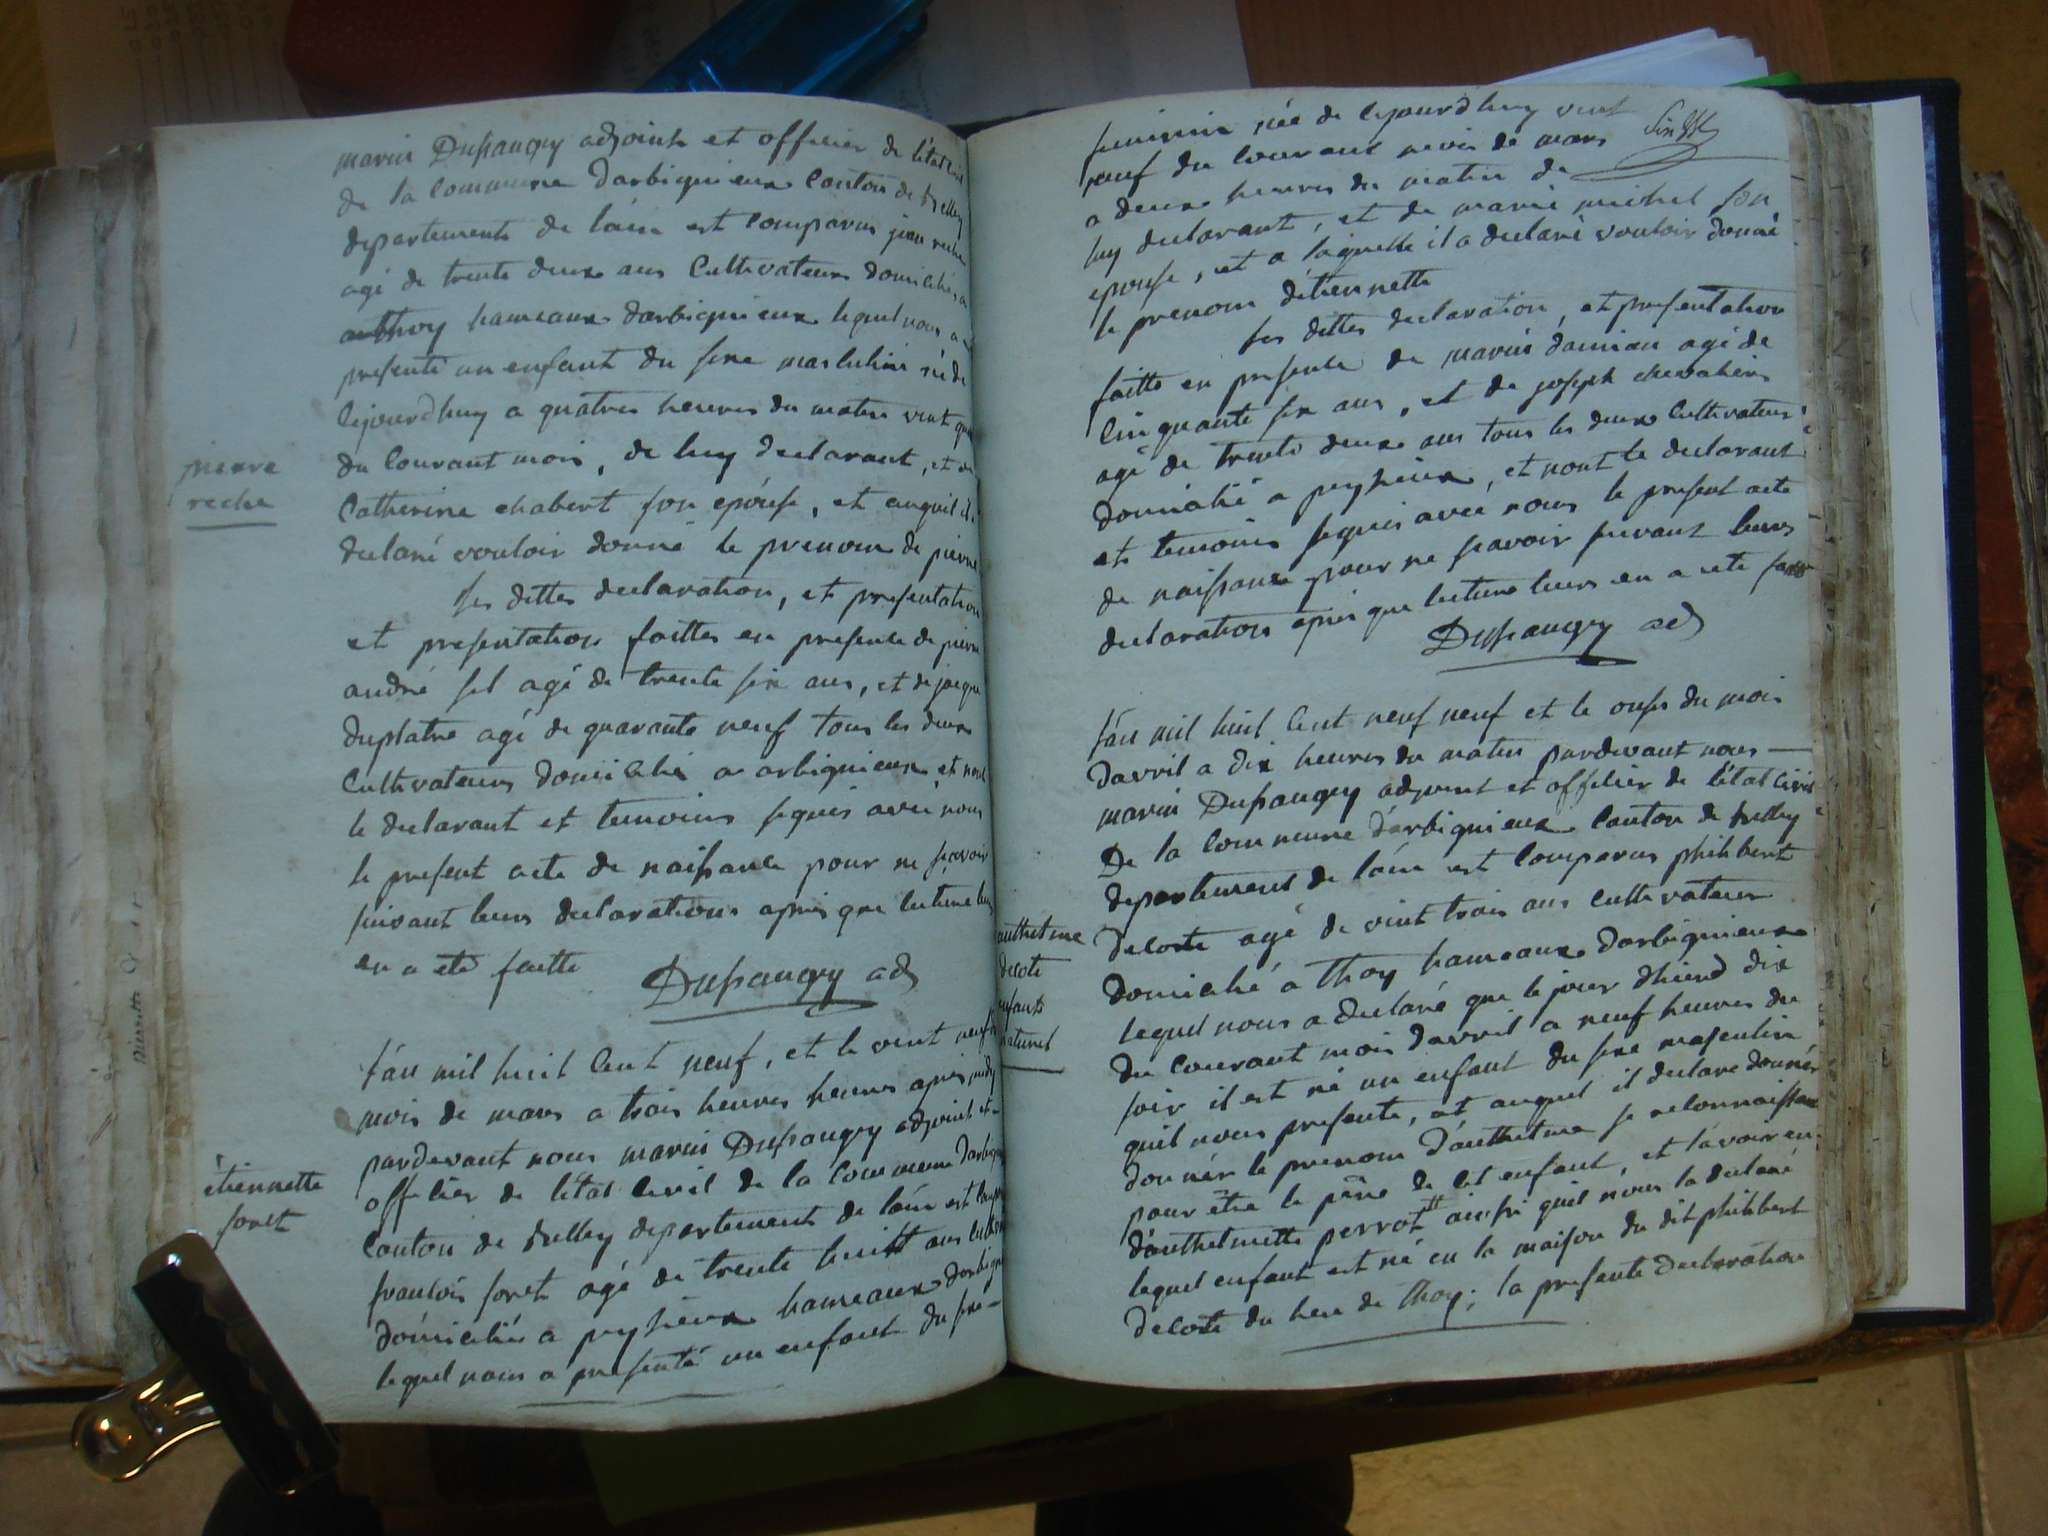 marin Dupaugey adjoint et officier de l'état civil
de la commune darbignieux canton de belley
departement de lain est comparus jean reche
agé de trente deux ans cultivateur domicilié a
authoy hameaux darbignieux lequel nous a
presenté un enfant du sexe masculin né de
cejourdhuy a quatres heures du matin vint
du courant mois, de luy declarant, et de
pierre
reche
Catherine chabert son epouse, et auquel il a
declaré vouloir donné le prenom de pierre
les dittes declaration, et presentation
et presentation faittes en presence de pierre
andré sel agé de trente six ans, et de jacque
duplatre agé de quarante neuf tous les deux
cultivateurs domicilié a arbignieux et nont
le declarant et temoins signés avec nous
le present acte de naissance pour ne scavoir
suivant leurs declarations apres que lecture leur
en a eté faitte Dupaugey ad
l'an mil huit cent neuf, et le vint neuf
mois de mars a trois heures heures apres midy
pardevant nous marin Dupaugey adjoint et
officier de l'état civil de la commune darbignieux
étiennette
foret
canton de belley departement de lain est comparus
francois foret agé de trente huitt ans cultivateur
domicilié a peyzieux hameaux darbignieux
lequel nous a presenté un enfant du sexe
feminin née de cejourdhuy vint
neuf du courant mois de mars
a deux heures du matin de
luy declarant, et de marie michel son
epouse, et a laquelle il a declaré vouloir donné
le prenom détiennette
les dittes declaration, et presentation
faitte en presence de marin damian agé de
cinquante six ans, et de joseph chevalier
agé de trente deux ans tous les deux cultivateurs
domicilié a peyzieux, et nont le declarant
et temoins signés avec nous le present acte
de naissance pour ne scavoir suivant leurs
declaration apres que lecture leurs en a eté faitte
Dupaugey ad
l'an mil huit cent neuf neuf et le onse du mois
davril a dix heures du matin pardevant nous
marin Dupaugey adjoint et officier de l'état civil
De la commune d'arbignieux canton de belley
departement de lain est comparus philibert
anthelme
decote
enfant
naturel
decorte agé de vint trois ans cultivateur
domicilié a thoy hameaux darbignieux
lequel nous a declaré que le jour dhierd dix
du courant mois davril a neuf heures du
soir il est né un enfant du sexe masculin
quil nous presente, et auquel il declare donner
donner le prenom d'anthelme se reconnaissant
pour être le père de cet enfant, et l'avoir eu
d'anthelmette perrot ainsi quil nous la declaré
lequel enfant est né en la maison du dit philibert
decorte du lieu de thoy; la presente declaration